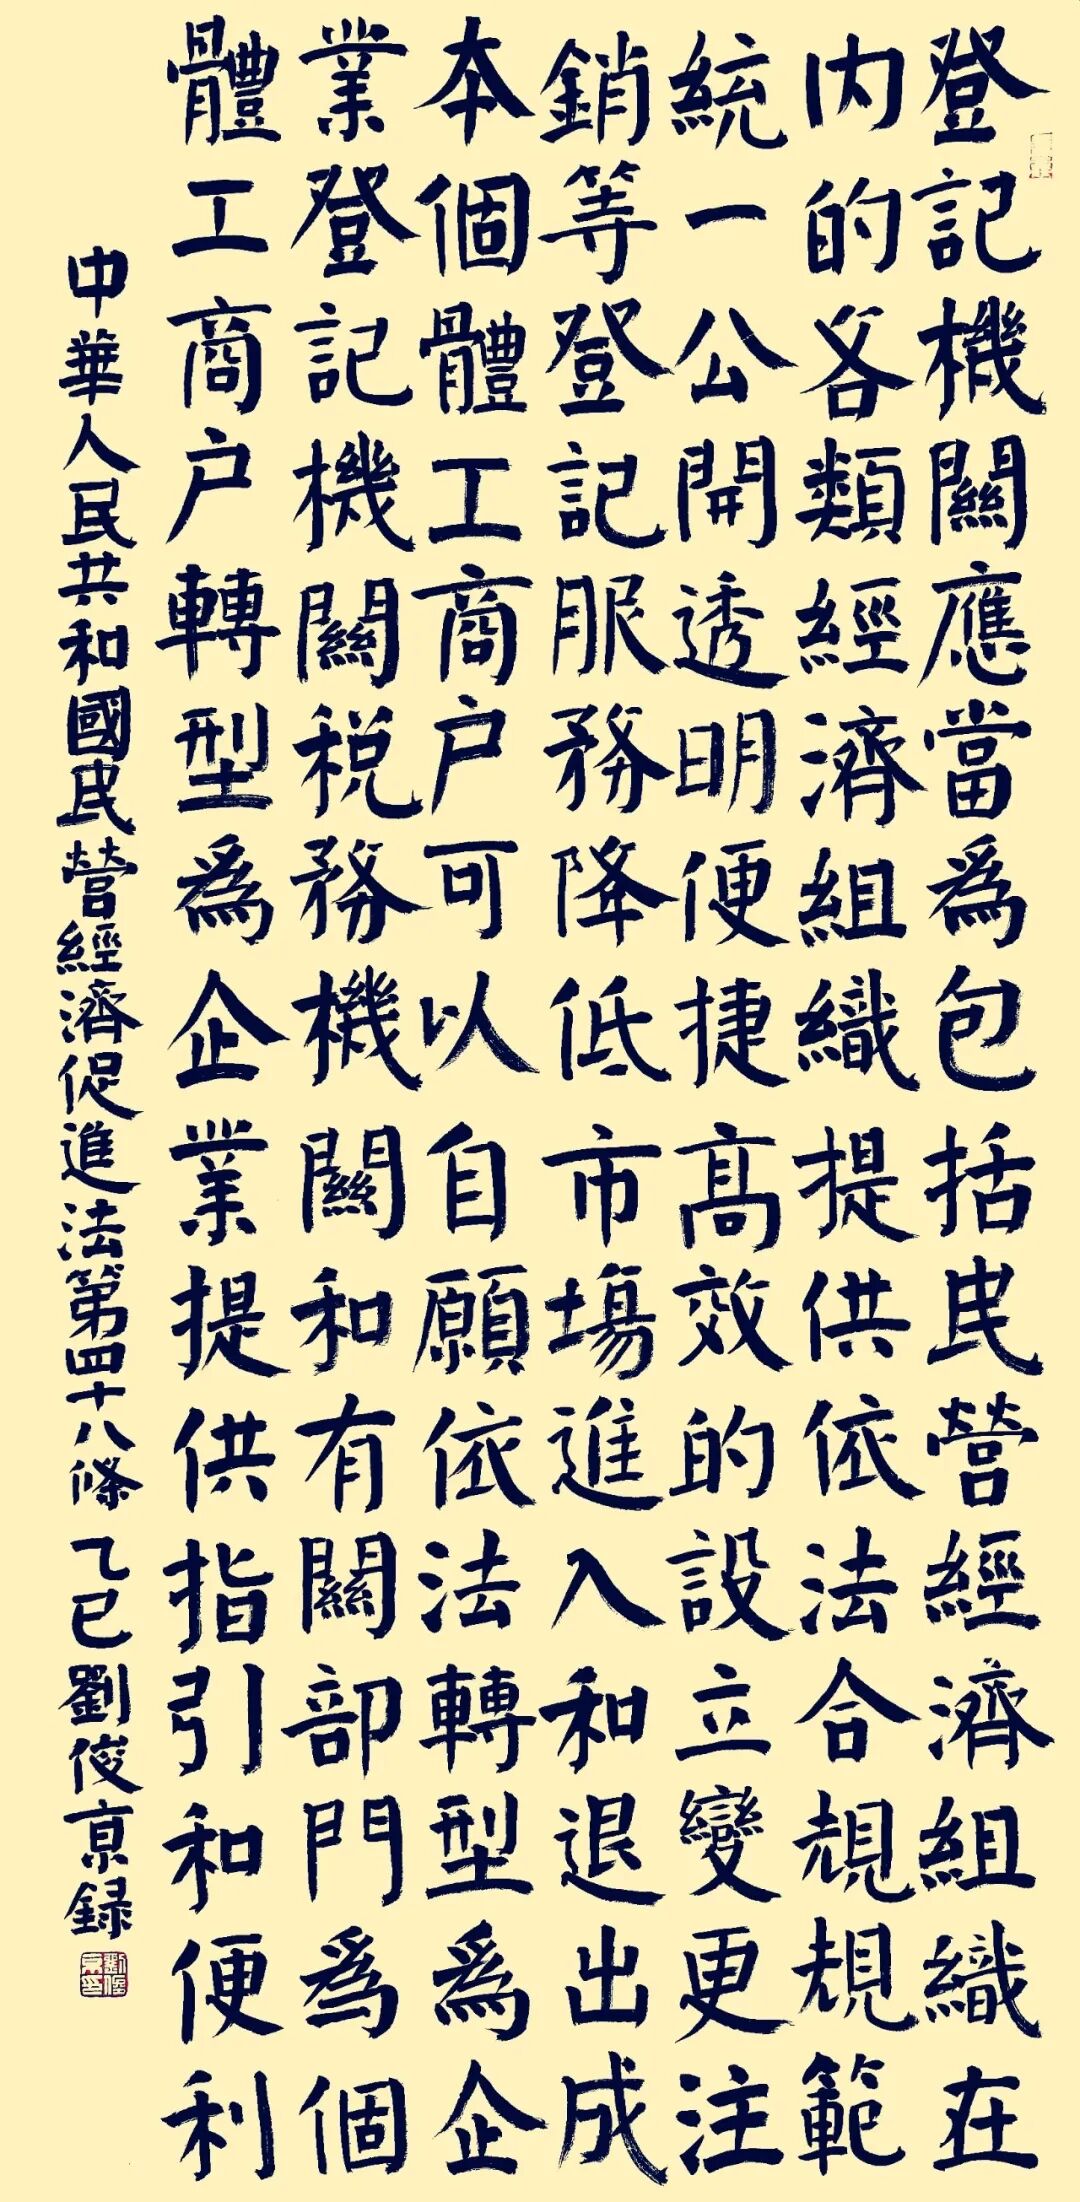 登記機關應當爲包括民營經濟組織在
内的各類經濟組織提供依法合規規範
統一公開透明便捷高效的設立變更注
銷等登記服務降低市場進入和退出成
本個體工商户可以自願依法轉型爲企
業登記機關税務機關和有關部門爲個
體工商户轉型爲企業提供指引和便利
中華人民共和國民營經濟促進法第四十八條 乙巳 劉俊亰録